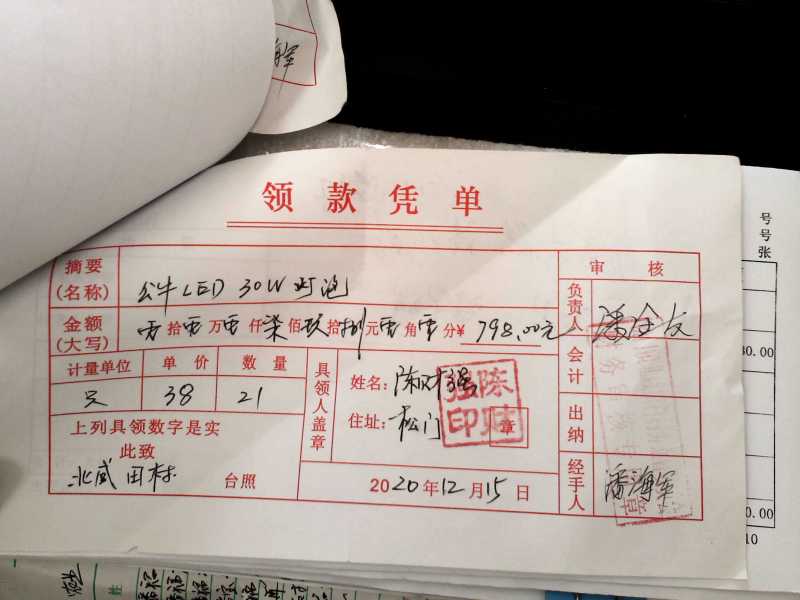 领款凭单
摘要
(名称)
公牛LED 30W灯泡
审核
金额
(大写)
零拾零万零仟柒佰玖拾捌元零角零分¥ 798.00元
负责人
计量单位 单价 数量
只 38 21
会计
具领人盖章
姓名:陈财强
住址:松门
陈财强印
章
上列具领数字是实
此致
北咸田村 台照
2020年12月15日
出纳
经手人
潘海军
号
号
张
30.00
0.00
10
姓